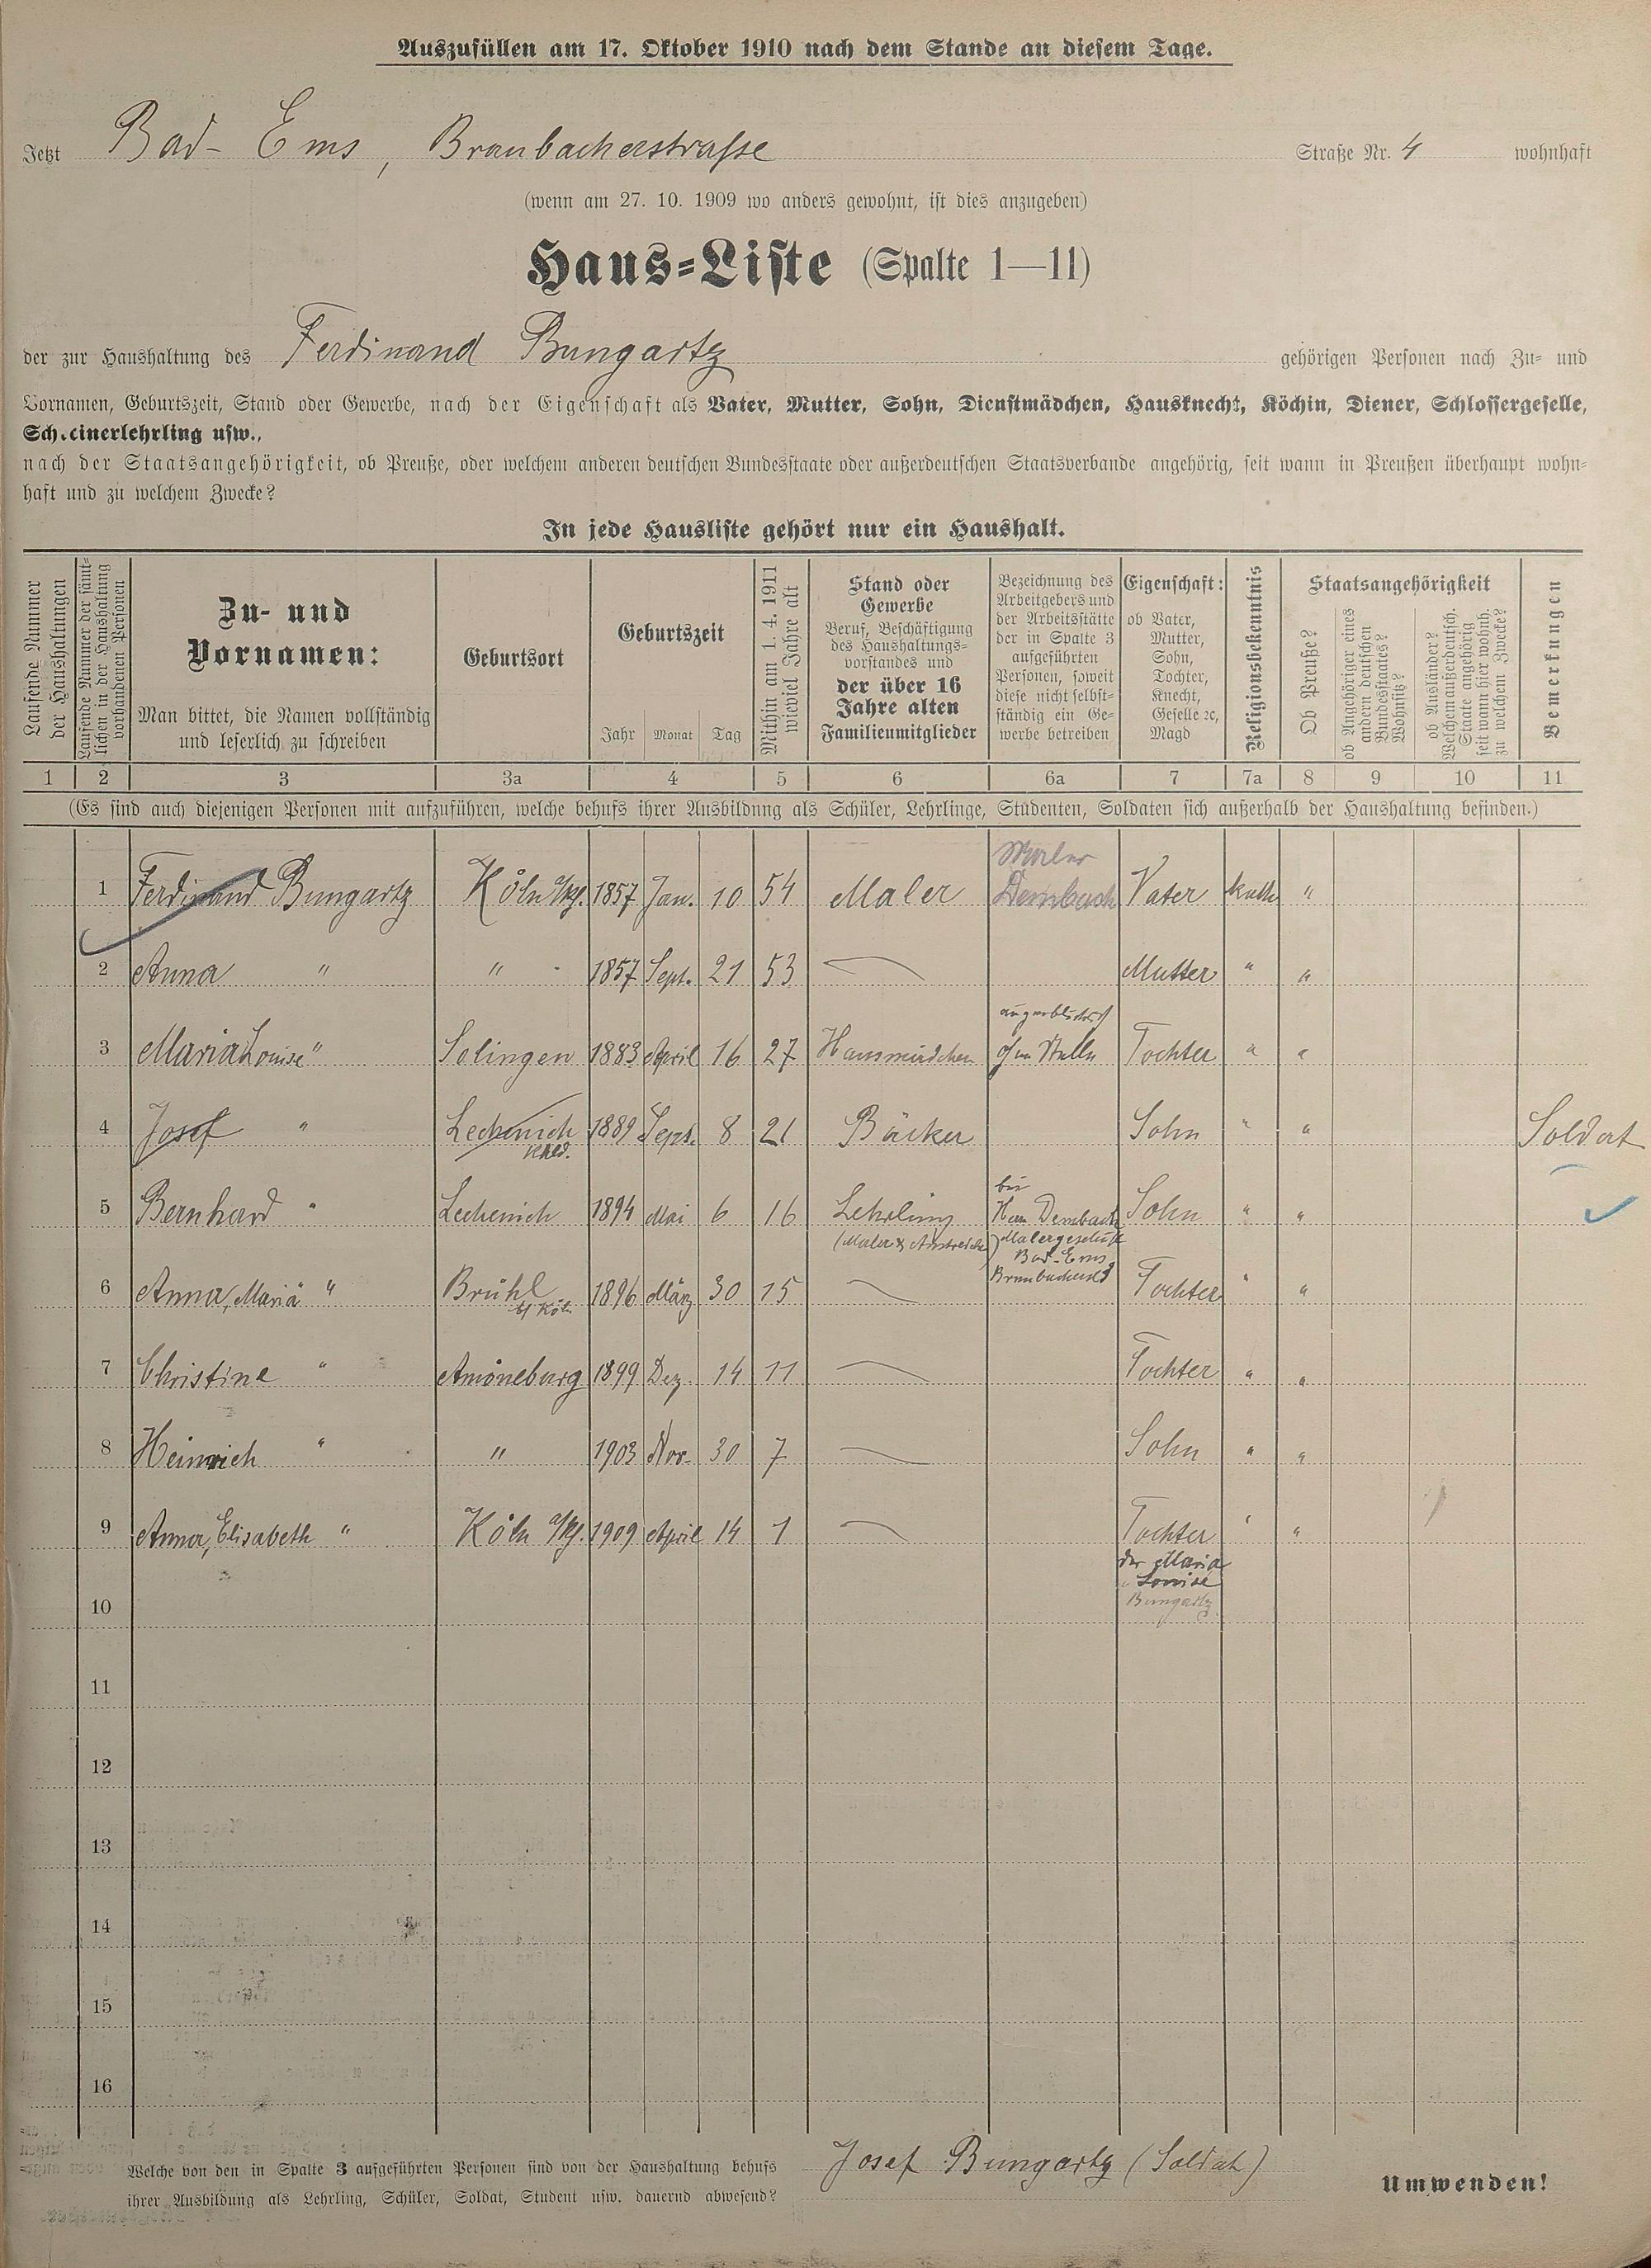 Auszufüllen am 17. Oktober 1910 nach dem Stande an diesem Tage.
Jetzt Bad-Ems, Braubacherstrasse Straße Nr. 4 wohnhaft
(wenn am 27. 10. 1909 wo anders gewohnt, ist dies anzugeben)
Haus-Liste (Spalte 1—11)
der zur Haushaltung des Ferdinand Bungartz gehörigen Personen nach Zu- und
Vornamen, Geburtszeit, Stand oder Gewerbe, nach der Eigenschaft als Vater, Mutter, Sohn, Dienstmädchen, Hausknecht, Köchin, Diener, Schlossergeselle,
Schreinerlehrling usw.,
nach der Staatsangehörigkeit, ob Preuße, oder welchem anderen deutschen Bundesstaate oder außerdeutschen Staatsverbande angehörig, seit wann in Preußen überhaupt wohn-
haft und zu welchem Zwecke?
In jede Hausliste gehört nur ein Haushalt.
Laufende Nummer
der Haushaltungen
Laufende Nummer der sämt-
lichen in der Haushaltung
vorhandenen Personen
Zu- und
Vornamen:
Man bittet, die Namen vollständig
und leserlich zu schreiben
Geburtsort
Geburtszeit
Jahr Monat Tag
Mithin am 1. 4. 1911
wieviel Jahre alt
Stand oder
Gewerbe
Beruf, Beschäftigung
des Haushaltungs-
vorstandes und
der über 16
Jahre alten
Familienmitglieder
Bezeichnung des
Arbeitgebers und
der Arbeitsstätte
der in Spalte 3
aufgeführten
Personen, soweit
diese nicht selbst-
ständig ein Ge-
werbe betreiben
Eigenschaft:
ob Vater,
Mutter,
Sohn,
Tochter,
Knecht,
Geselle ꝛc,
Magd
Religionsbekenntnis
Staatsangehörigkeit
Ob Preuße?
ob Angehöriger eines
andern deutschen
Bundesstaates?
Wohnsitz?
ob Ausländer?
Welchem außerdeutsch.
Staate angehörig
seit wann hier wohnh.
zu welchem Zwecke?
Bemerkungen
1 2 3 3a 4 5 6 6a 7 7a 8 9 10 11
(Es sind auch diejenigen Personen mit aufzuführen, welche behufs ihrer Ausbildung als Schüler, Lehrlinge, Studenten, Soldaten sich außerhalb der Haushaltung befinden.)
Maler
1 Ferdinand Bungartz Köln a/Rh. 1857 Jan. 10 54 Maler Dembach Vater kath "
2 Anna " " 1857 Sept. 21 53 Mutter " "
3 Maria Louise " Solingen 1883 April 16 27 Hausmädchen Tochter " "
4 Josef " Lechenich 1889 Sept. 8 21 Bäcker Sohn " " Soldat
bei
5 Bernhard " Lechenich 1894 Mai 6 16 Lehrling Herrn Dembach Sohn " "
(Maler & Anstreicher) Malergeschäft
Bad-Ems
6 Anna, Maria " Brühl 1896 März 30 15 Tochter " "
b/ Köln
7 Christine " Amöneburg 1899 Dez. 14 11 Tochter " "
8 Heinrich " " 1903 Nov. 30 7 Sohn " "
9 Anna, Elisabeth " Köln a/Rh. 1909 April 14 1 Tochter " "
der Maria
Louise
Bungartz
10
11
12
13
14
15
16
Welche von den in Spalte 3 aufgeführten Personen sind von der Haushaltung behufs Josef Bungartz (Soldat)
ihrer Ausbildung als Lehrling, Schüler, Soldat, Student usw. dauernd abwesend?
Umwenden!